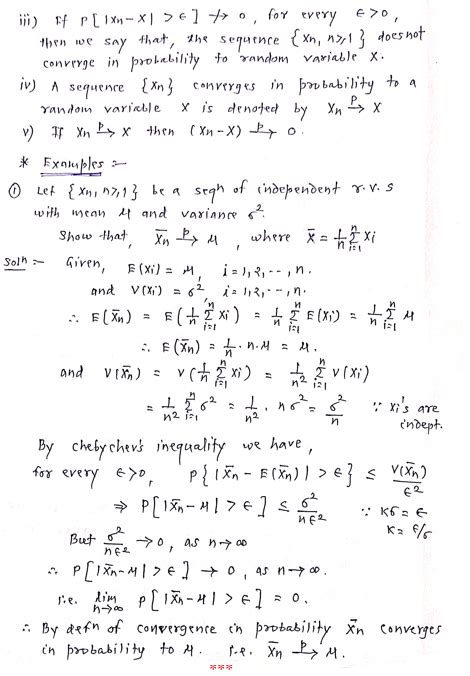 iii) If P[|Xn-X| >ϵ] ↛ 0, for every ϵ>0,
then we say that, the sequence {Xn, n≥1} does not
converge in probability to random variable X.
iv) A sequence {Xn} converges in probability to a
random variable X is denoted by Xn →ᴾ X
v) If Xn →ᴾ X then (Xn-X) →ᴾ 0.
* Examples :-
① Let {Xn, n≥1} be a seqn of independent r.v.s
with mean μ and variance σ².
Show that, X̄n →ᴾ μ, where X̄ = 1/n Σ_{i=1}^{n} Xi
Solⁿ :- Given, E(Xi) = μ, i=1,2,--,n.
and V(Xi) = σ² i=1,2,--,n.
∴ E(X̄n) = E(1/n Σ_{i=1}^{n} Xi) = 1/n Σ_{i=1}^{n} E(Xi) = 1/n Σ_{i=1}^{n} μ
∴ E(X̄n) = 1/n · n·μ = μ.
and V(X̄n) = V(1/n Σ_{i=1}^{n} Xi) = 1/n² Σ_{i=1}^{n} V(Xi)
= 1/n² Σ_{i=1}^{n} σ² = 1/n² · nσ² = σ²/n ∵ Xi's are
indept.
By chebychev's inequality we have,
for every ϵ>0, P{|X̄n - E(X̄n)| > ϵ} ≤ V(X̄n)/ϵ²
⇒ P[|X̄n-μ| > ϵ] ≤ σ²/nϵ² ∵ Kσ = ϵ
K = ϵ/σ
But σ²/nϵ² → 0, as n→∞
∴ P[|X̄n-μ| > ϵ] → 0, as n→∞.
i.e. lim_{n→∞} P[|X̄n-μ| > ϵ] = 0.
∴ By defⁿ of convergence in probability X̄n converges
in probability to μ. i.e. X̄n →ᴾ μ.
***